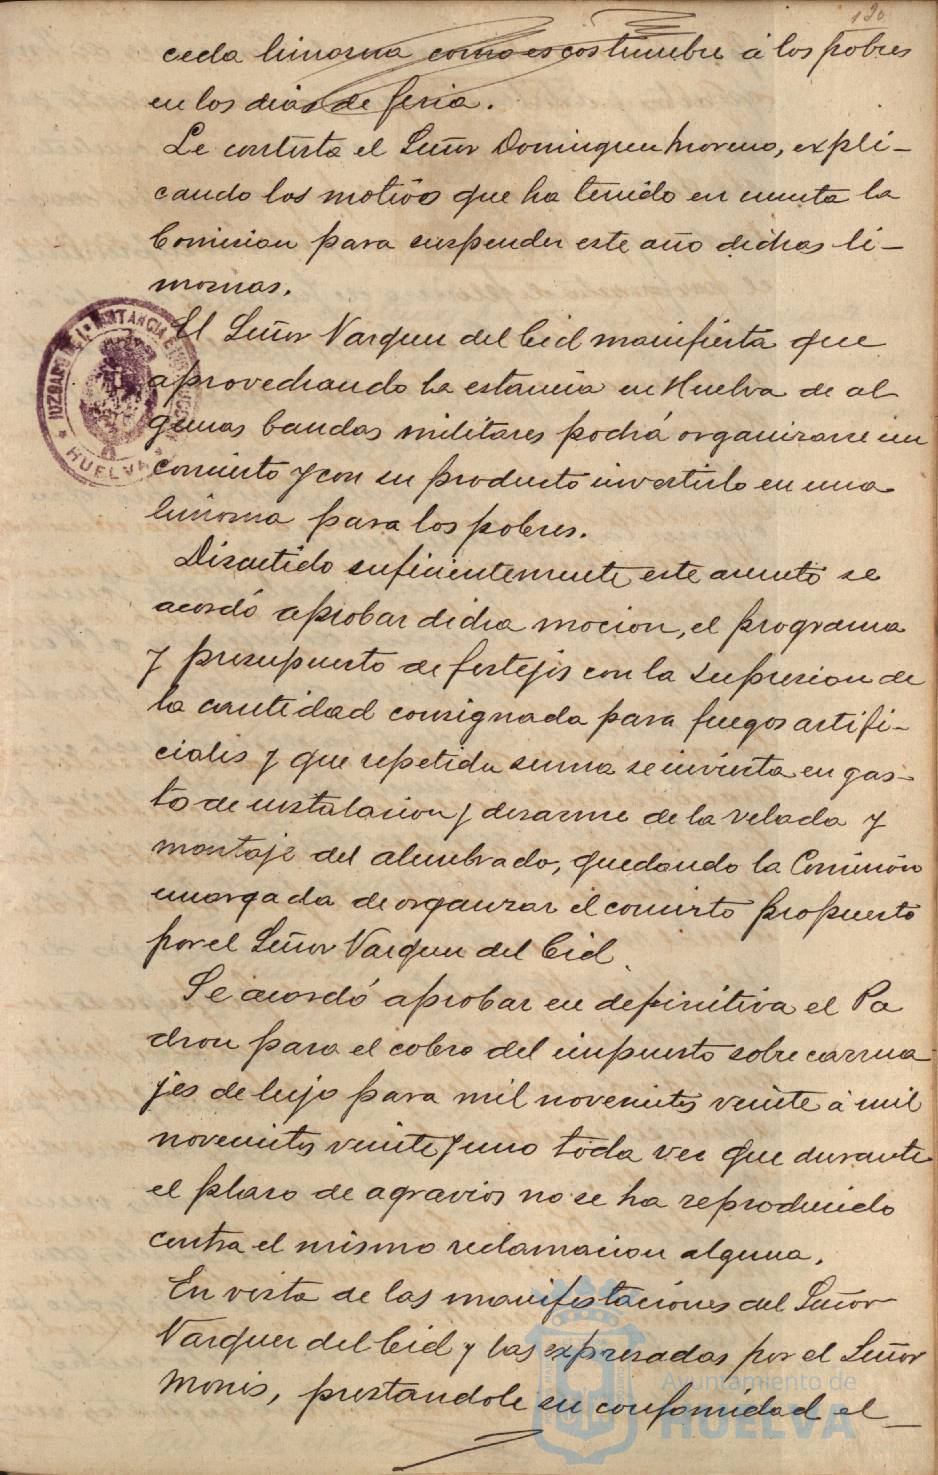 130
ceda limosna como es costumbre á los pobres
en los dias de feria.
Le contesta el Señor Dominguez Moreno, expli-
cando los motivos que ha tenido en cuenta la
Comision para suspender este año dichas li-
mosnas.
El Señor Vazquez del Cid manifiesta que
aprovechando la estancia en Huelva de al
gunas bandas militares podrá organizarse un
concierto y con su producto invertirlo en una
limosna para los pobres.
Discutido suficientemente este asunto se
acordó aprobar dicha mocion, el programa
y presupuesto de festejos con la supresion de
la cantidad consignada para fuegos artifi-
ciales y que repetida suma se invierta en gas-
to de instalacion y desarme de la velada y
montaje del alumbrado, quedando la Comisión
encargada de organizar el concierto propuesto
por el Señor Vazquez del Cid.
Se acordó aprobar en definitiva el Pa
dron para el cobro del impuesto sobre carrua
jes de lujo para mil novecientos veinte á mil
novecientos veinte y uno toda vez que durante
el plazo de agravios no se ha reproducido
contra el mismo reclamacion alguna.
En vista de las manifestaciones del Señor
Vazquez del Cid y las expresadas por el Señor
Monis, prestandole su conformidad el
JUZGADO DE 1ª INSTANCIA E
HUELVA
Ayuntamiento de
HUELVA